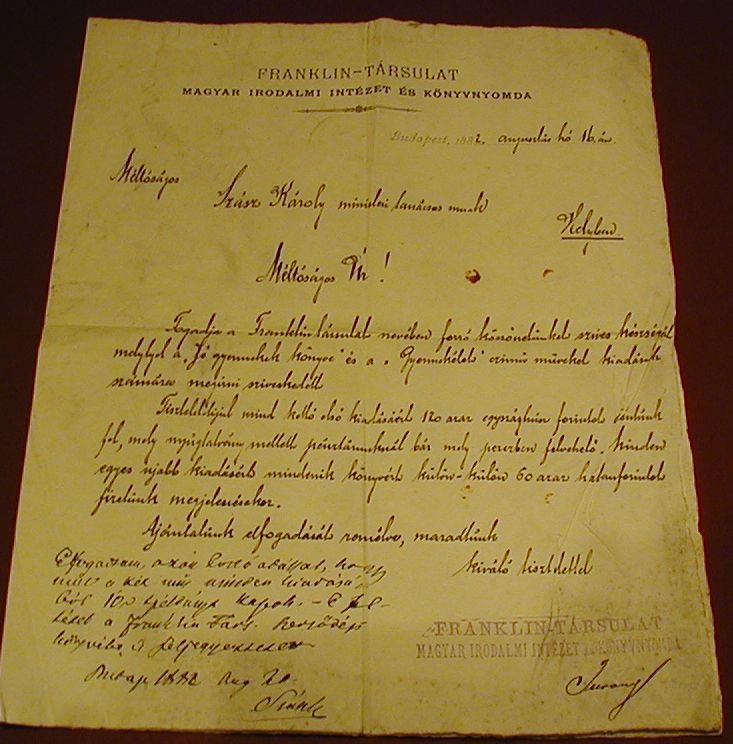 FRANKLIN-TÁRSULAT
MAGYAR IRODALMI INTÉZET ÉS KÖNYVNYOMDA
Budapest, 1882. augusztus hó 16.án
Méltóságos
Szász Károly ministeri tanácsos urnak
Helyben
Méltóságos Úr!
Fogadja a Franklin-társulat nevében forró köszönetünket szives készségét
melylyel a „Jó gyermekek könyve" és a „Gyermekélet" czimü müveket kiadásunk
számára megirni sziveskedett
Tiszteletdijul mind kettő első kiadásáért 120 azaz egyszázhúsz forintot
fel, mely nyugtatvány mellett pénztárunknál bár mely perczben felvehető. Minden
egyes ujabb kiadásért mindenik könyvért külön-külön 60 azaz hatvan forintot
fizetünk megjelenésekor.
Ajánlatunk elfogadását remélve, maradtunk
kiváló tisztelettel
Elfogadom, azon hogy
a két mű minden kiadásá-
ból 10 példányt kapok. - E fel-
tétel a Franklin Társ.
könyvébe is
Budap. 1882 Aug 20.
Szász K
FRANKLIN-TÁRSULAT
MAGYAR IRODALMI INTÉZET ÉS KÖNYVNYOMDA